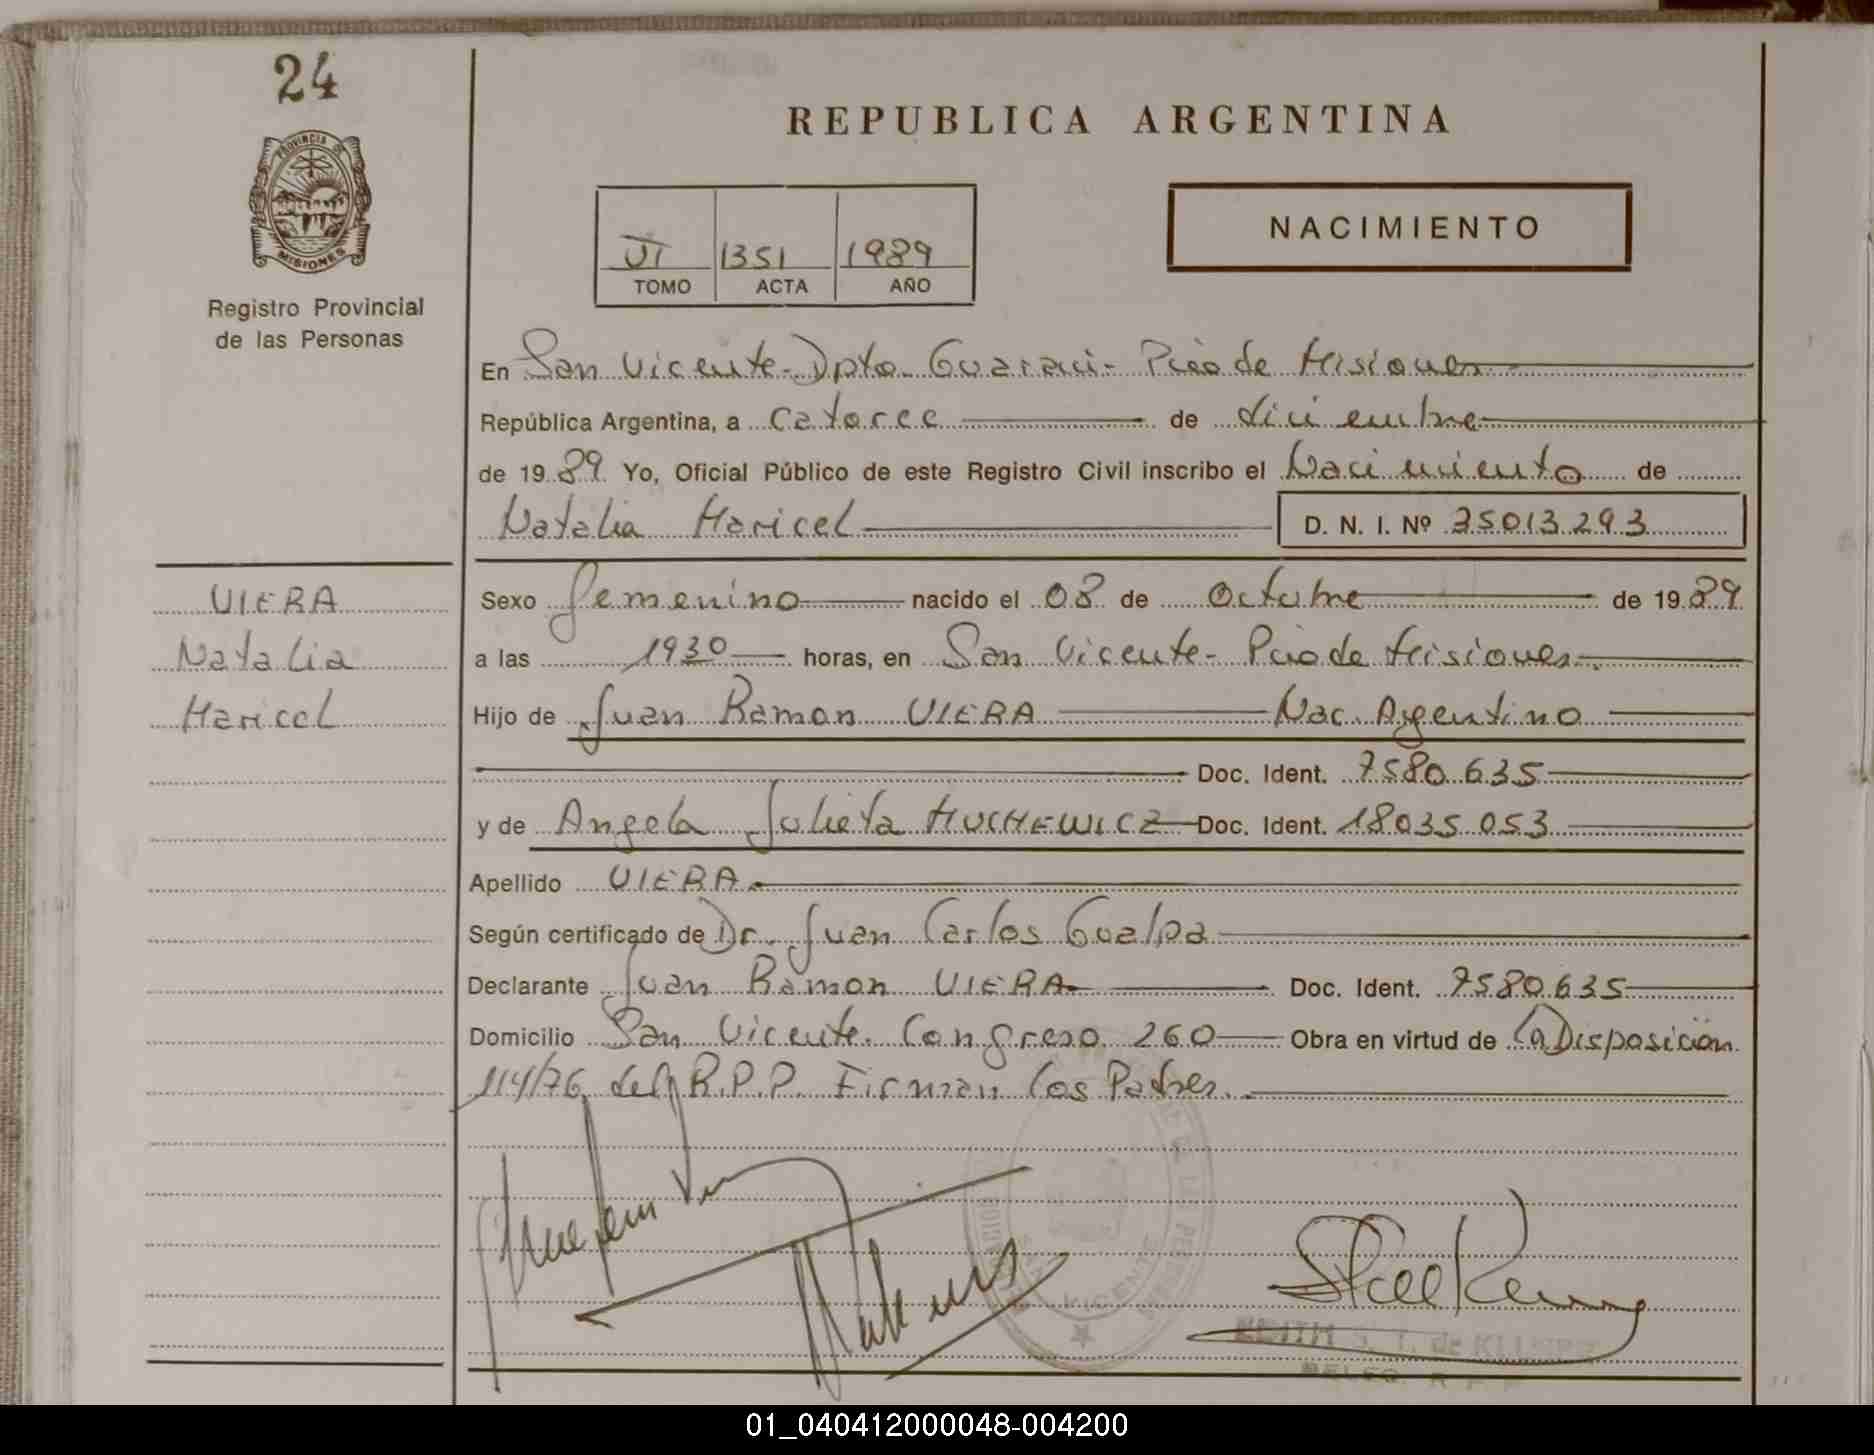 24
PROVINCIA DE
MISIONES
Registro Provincial
de las Personas
REPUBLICA ARGENTINA
NACIMIENTO
VI 1351 1989
TOMO ACTA AÑO
En San Vicente-Dpto. Guarani- Pcia de Misiones
República Argentina, a Catorce de diciembre
de 1989 Yo, Oficial Público de este Registro Civil inscribo el Nacimiento de
Natalia Maricel D. N. I. Nº 35013.293
VIERA
Natalia
Maricel
Sexo femenino nacido el 08 de Octubre de 1989
a las 1930 horas, en San Vicente- Pcia de Misiones
Hijo de Juan Ramon VIERA Nac. Argentino
Doc. Ident. 7580.635
y de Angela Julieta MUCHEWICZ Doc. Ident. 18035.053
Apellido VIERA
Según certificado de Dr. Juan Carlos Gualpa
Declarante Juan Ramon VIERA Doc. Ident. 7580.635
Domicilio San Vicente. Congreso 260 Obra en virtud de la Disposición
114/76 del R.P.P. Firman los Padres.
VICENTE
EDITH S. T. de
01_040412000048-004200